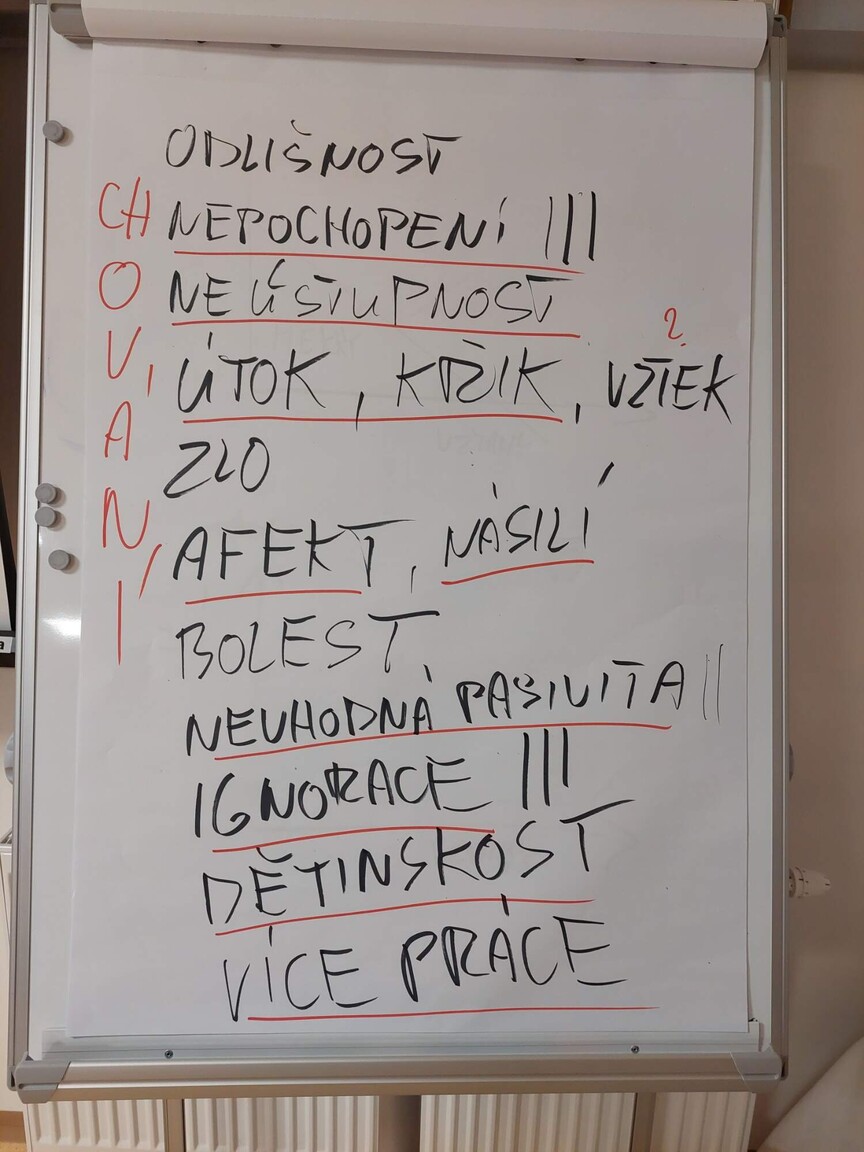 ODLIŠNOST
NEPOCHOPENÍ |||
NEÚSTUPNOST
?
ÚTOK, KŘIK, VZTEK
ZLO
AFEKT, NÁSILÍ
BOLEST
NEVHODNÁ PASIVITA ||
IGNORACE |||
DĚTINSKOST
VÍCE PRÁCE
CHOVÁNÍ